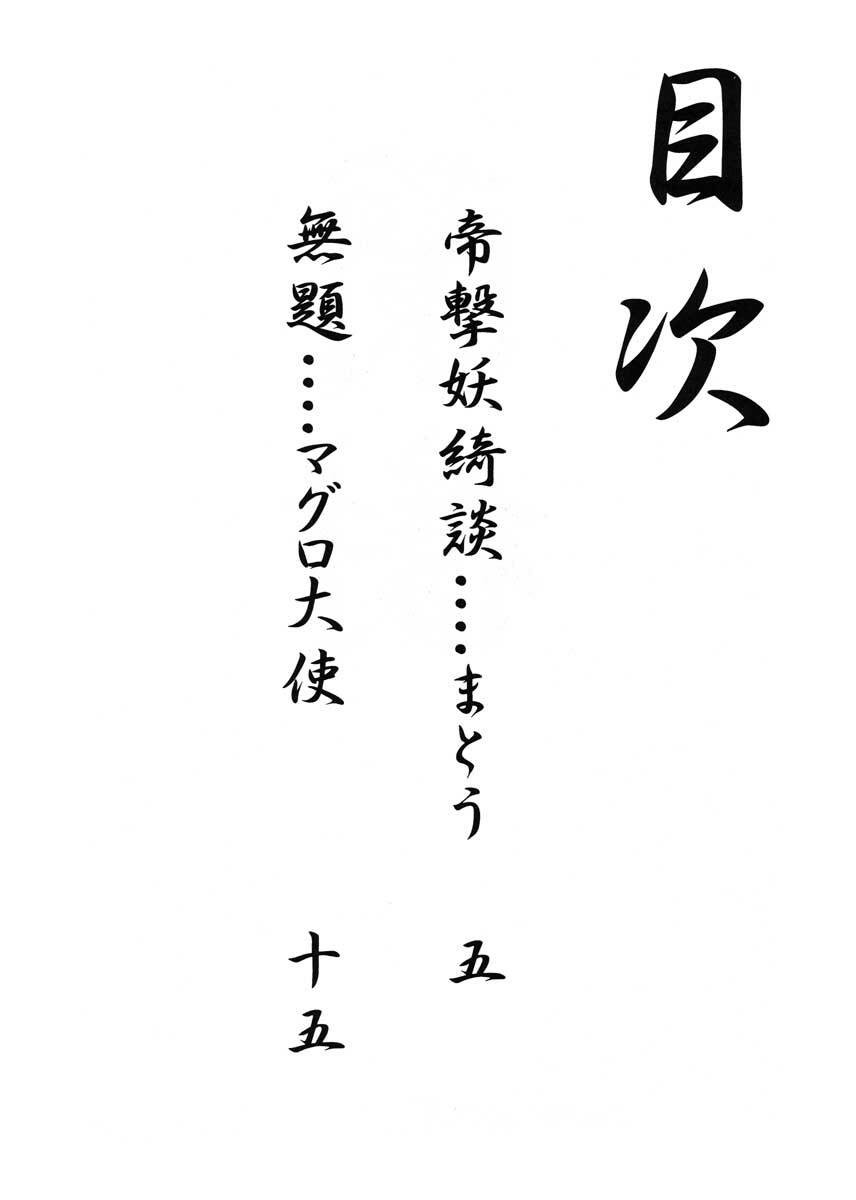 目次
帝撃妖綺談‥‥まとう　五
無題‥‥マグロ大使　十五